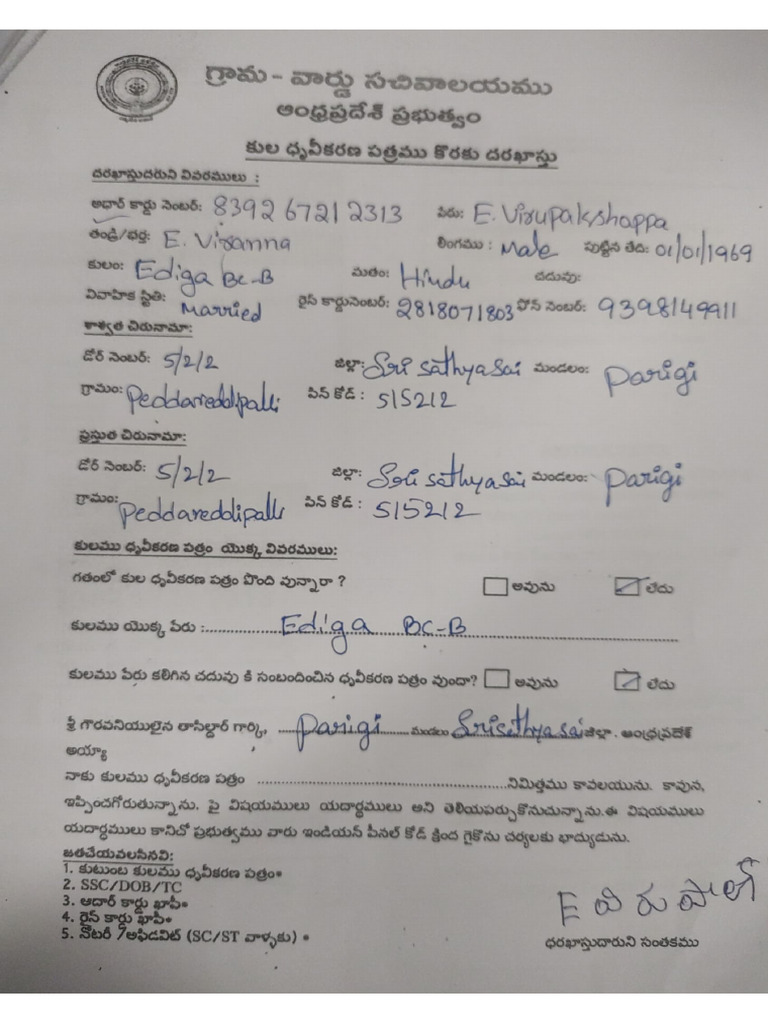 గ్రామ - వార్డు సచివాలయము
ఆంధ్రప్రదేశ్ ప్రభుత్వం
కుల ధృవీకరణ పత్రము కొరకు దరఖాస్తు
దరఖాస్తుదారుని వివరములు :
అధార్ కార్డు నెంబర్: 8392 6721 2313 పేరు: E. Virupakshappa
తండ్రి/భర్త: E. Viranna లింగము : Male పుట్టిన తేది: 01/01/1969
కులం: Ediga BC-B మతం: Hindu చదువు:
వివాహిక స్థితి: Married రైస్ కార్డునెంబర్: 2818071803 ఫోన్ నెంబర్: 9398149911
శాశ్వత చిరునామా:
డోర్ నెంబర్: 5/2/2 జిల్లా: Sri sathya sai మండలం: Parigi
గ్రామం: Peddareddipalli పిన్ కోడ్ : 515212
ప్రస్తుత చిరునామా:
డోర్ నెంబర్: 5/2/2 జిల్లా: Sri sathya sai మండలం: Parigi
గ్రామం: Peddareddipalli పిన్ కోడ్ : 515212
కులము ధృవీకరణ పత్రం యొక్క వివరములు:
గతంలో కుల ధృవీకరణ పత్రం పొంది వున్నారా ? అవును లేదు
కులము యొక్క పేరు :.......Ediga BC-B.......
కులము పేరు కలిగిన చదువు కి సంబందించిన ధృవీకరణ పత్రం వుందా? అవును లేదు
శ్రీ గౌరవనియులైన తాసిల్దార్ గార్కి, .......Parigi....... మండలు Srisathyasai జిల్లా. ఆంధ్రప్రదేశ్
అయ్యా
నాకు కులము ధృవీకరణ పత్రం .......నిమిత్తము కావలయును. కావున,
ఇప్పించగోరుతున్నాను. పై విషయములు యదార్థములు అని తెలియపర్చుకొనుచున్నాను.ఈ విషయములు
యదార్థములు కానిచో ప్రభుత్వము వారు ఇండియన్ పీనల్ కోడ్ క్రింద గైకొను చర్యలకు భాద్యుడును.
జతచేయవలసినవి:
1. కుటుంబ కులము ధృవీకరణ పత్రం•
2. SSC/DOB/TC
3. ఆదార్ కార్డు ఖాపీ•
4. రైస్ కార్డు ఖాపీ•
5. నోటరీ /అఫిడవిట్ (SC/ST వాళ్ళకు) •
E
ధరఖాస్తుదారుని సంతకము